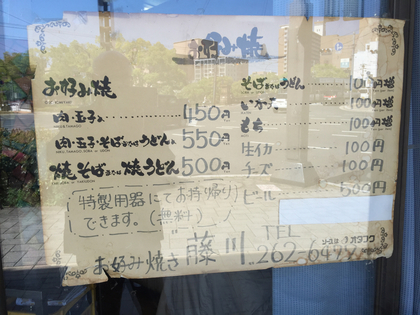 お好み焼
肉・玉子入 450円
肉・玉子・そばまたはうどん入 550円
焼そばまたは焼うどん 500円
そばまたはうどん 100円増
いか天 100円増
もち 100円増
生イカ 100円
チーズ 100円
ビール 500円
特製用器にてお持ち帰り
できます。(無料)
お好み焼き 藤川
TEL
262-649
オタフク